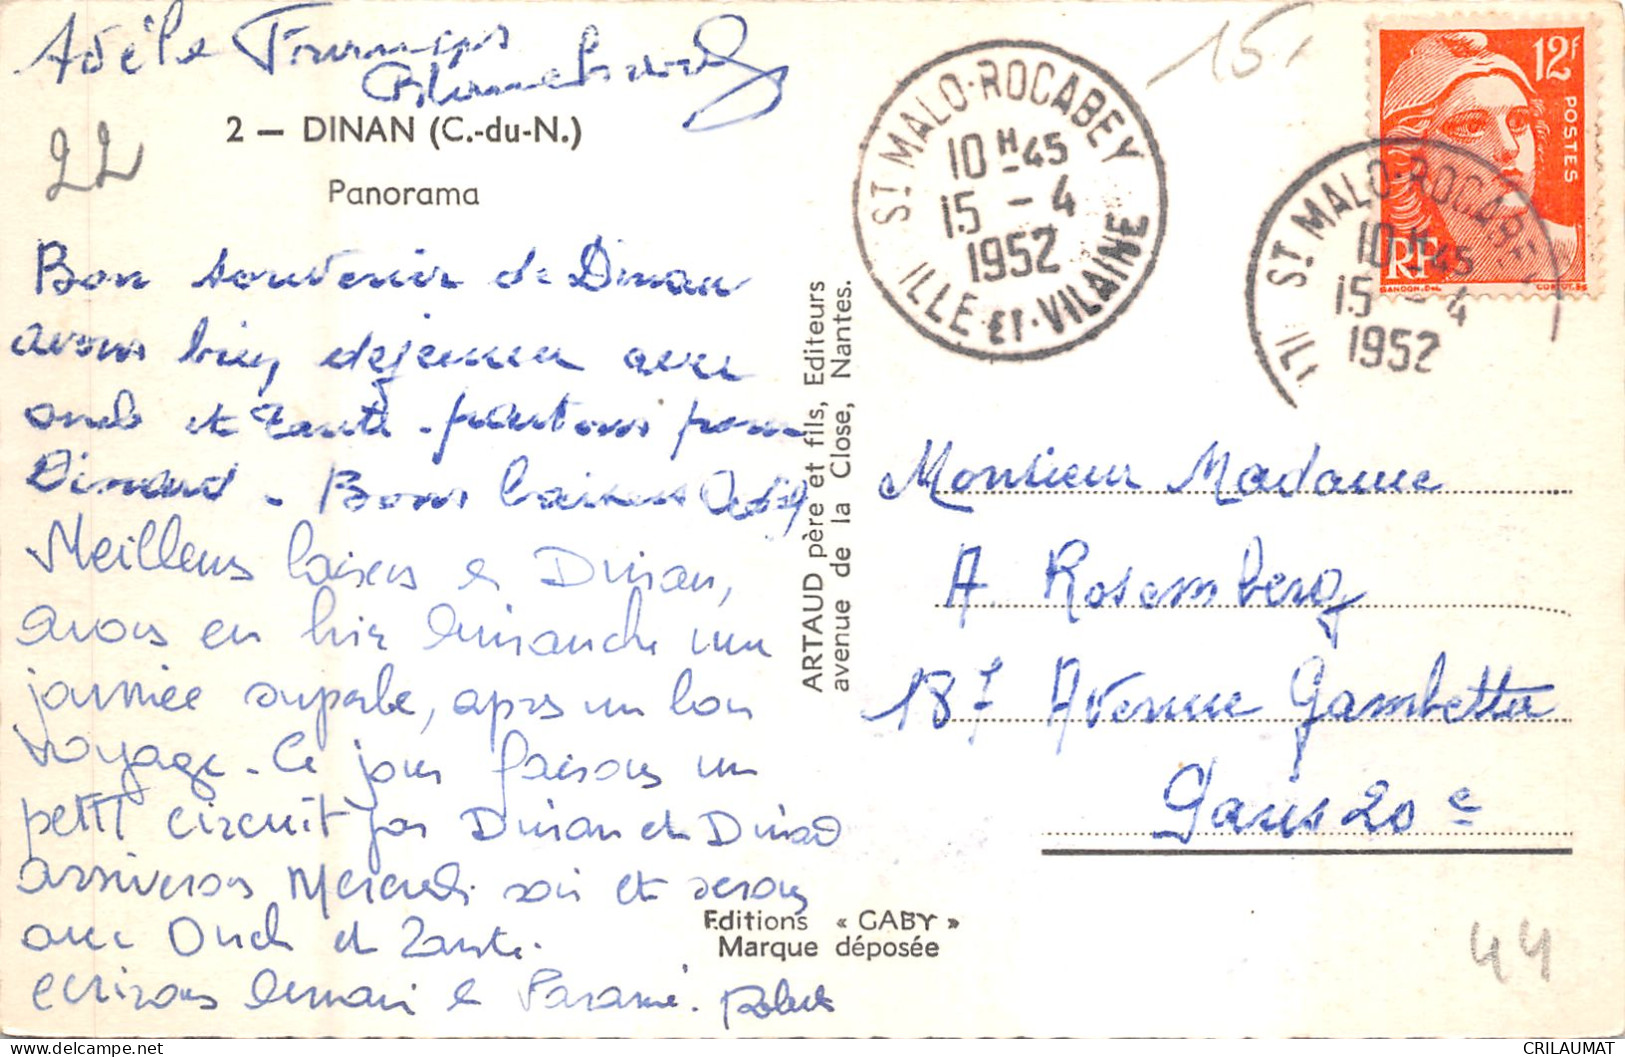 Adèle
22
2 — DINAN (C.-du-N.)
Panorama
Bon souvenir de Dinan
avons bien déjeuner avec
oncle et tante - partons pour
Dinard - Bons baisers
Meilleurs baisers de Dinan,
avons eu hier dimanche une
journée superbe, après un bon
voyage - Ce jour faisons un
petit circuit par Dinan et Dinard
arriverons Mercredi soir et serons
avec Oncle et Tante.
écrirons demain de Paramé.
ARTAUD père et fils, Editeurs
avenue de la Close, Nantes.
Editions « GABY »
Marque déposée
15
ST MALO-ROCABEY
10H45
15 - 4
1952
ILLE-ET-VILAINE
12F
POSTES
RF
GANDON.DEL
ST MALO-ROCABEY
10H45
15 - 4
1952
ILL
Monsieur Madame
A Rosemberg
187 Avenue Gambetta
Paris 20e
44
CRILAUMAT